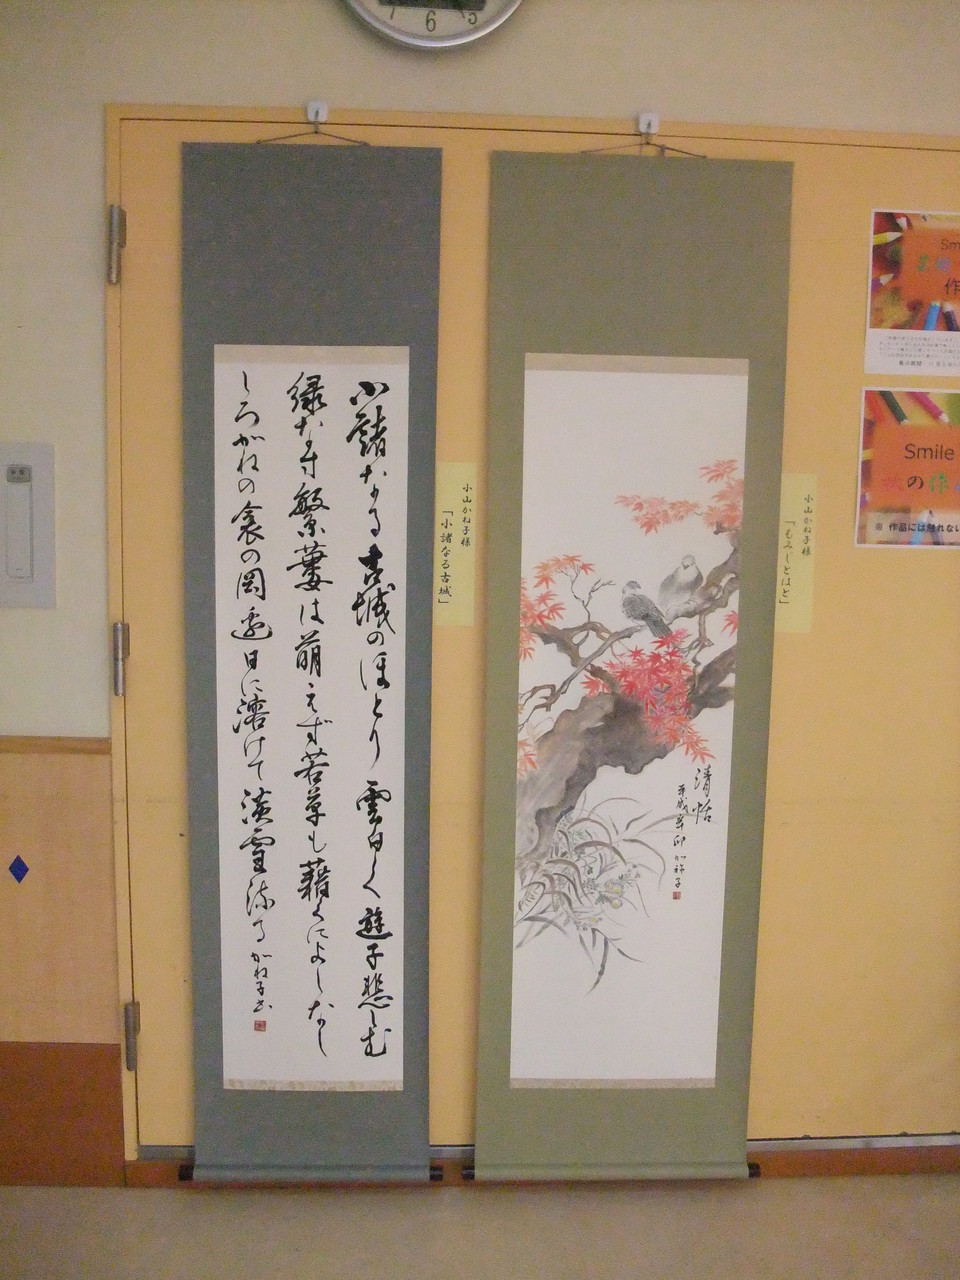 小諸なる古城のほとり 雲白く遊子悲しむ
緑なす繁蔞は萌えず若草も藉くによしなし
しろがねの衾の岡邊日に溶けて淡雪流る
かね子書
小山かね子様
「小諸なる古城」
清恬
平成辛卯 加祢子
小山かね子様
「もみじとはと」
Smile
の作
※ 作品には触れない
6
5
7